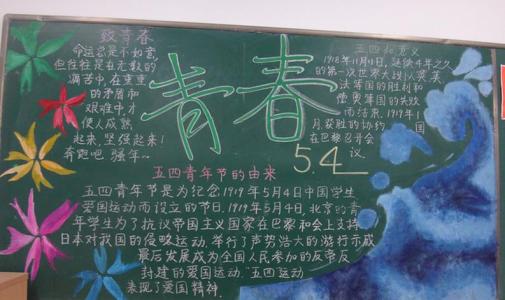 致青春
命运总是不如意,
但往往是在无数的
痛苦中,在重重
的矛盾和
艰难中,才
使人成熟
起来,坚强起来!
奔跑吧 强年~
青春
5.4
五四的意义
1918年11月11日,延续4年之久
的第一次世界大战以英、美、
法等国的胜利和
德奥等国的失败
而结束.1919年1
月,获胜的协约国
在巴黎召开会
议.
五四青年节的由来
五四青年节是为纪念1919年5月4日中国学生
爱国运动而设立的节日.1919年5月4日,北京的青
年学生为了抗议帝国主义国家在巴黎和会上支持
日本对我国的侵略运动,举行了声势浩大的游行示威
最后发展成为全国人民参加的反帝反
封建的爱国运动."五四运动
表现了爱国精神.